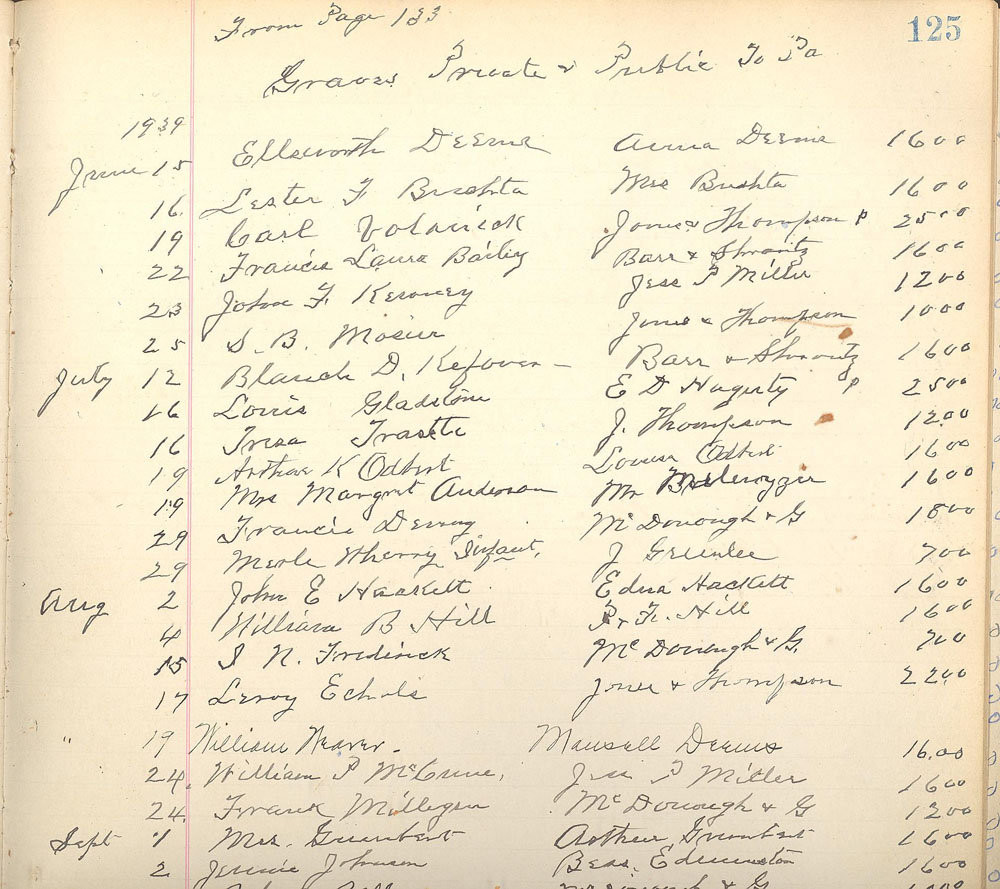 From Page 133
125
Graves Private & Public To Pa
1939
June 15 Ellsworth Deems Anna Deems 1600
16 Lester F Bushta Mrs Bushta 1600
19 Carl Jones & Thompson P 2500
22 Francis Laura Bailey Barr & 1600
23 John F Jess P Miller 1200
25 S. B. Mosier Jones & Thompson 1000
July 12 Blanch D. Kefover Barr & 1600
16 Louis Gladstone E D Hagerty P 2500
16 J. Thompson 1200
19 Arthur K Odbert Louisa Odbert 1600
19 Mrs Margret Anderson Mr 1600
29 Francis McDonough & G 1800
29 Merle Wherry Infant. J Greenlee 700
Aug 2 John E Hackett Edna Hackett 1600
4 William B Hill Hill 1600
15 J N. Fredrick McDonough & G. 700
17 Leroy Echols Jones & Thompson 2200
" 19 William Weaver. Mansell Deems 16.00
24. William P McCune, Jess P Miller 1600
24. Frank Milligan McDonough & G 1200
Sept 1 Mrs. Gumbert Arthur Gumbert 1600
2 Jennie Johnson Bess. Edmunston 1600